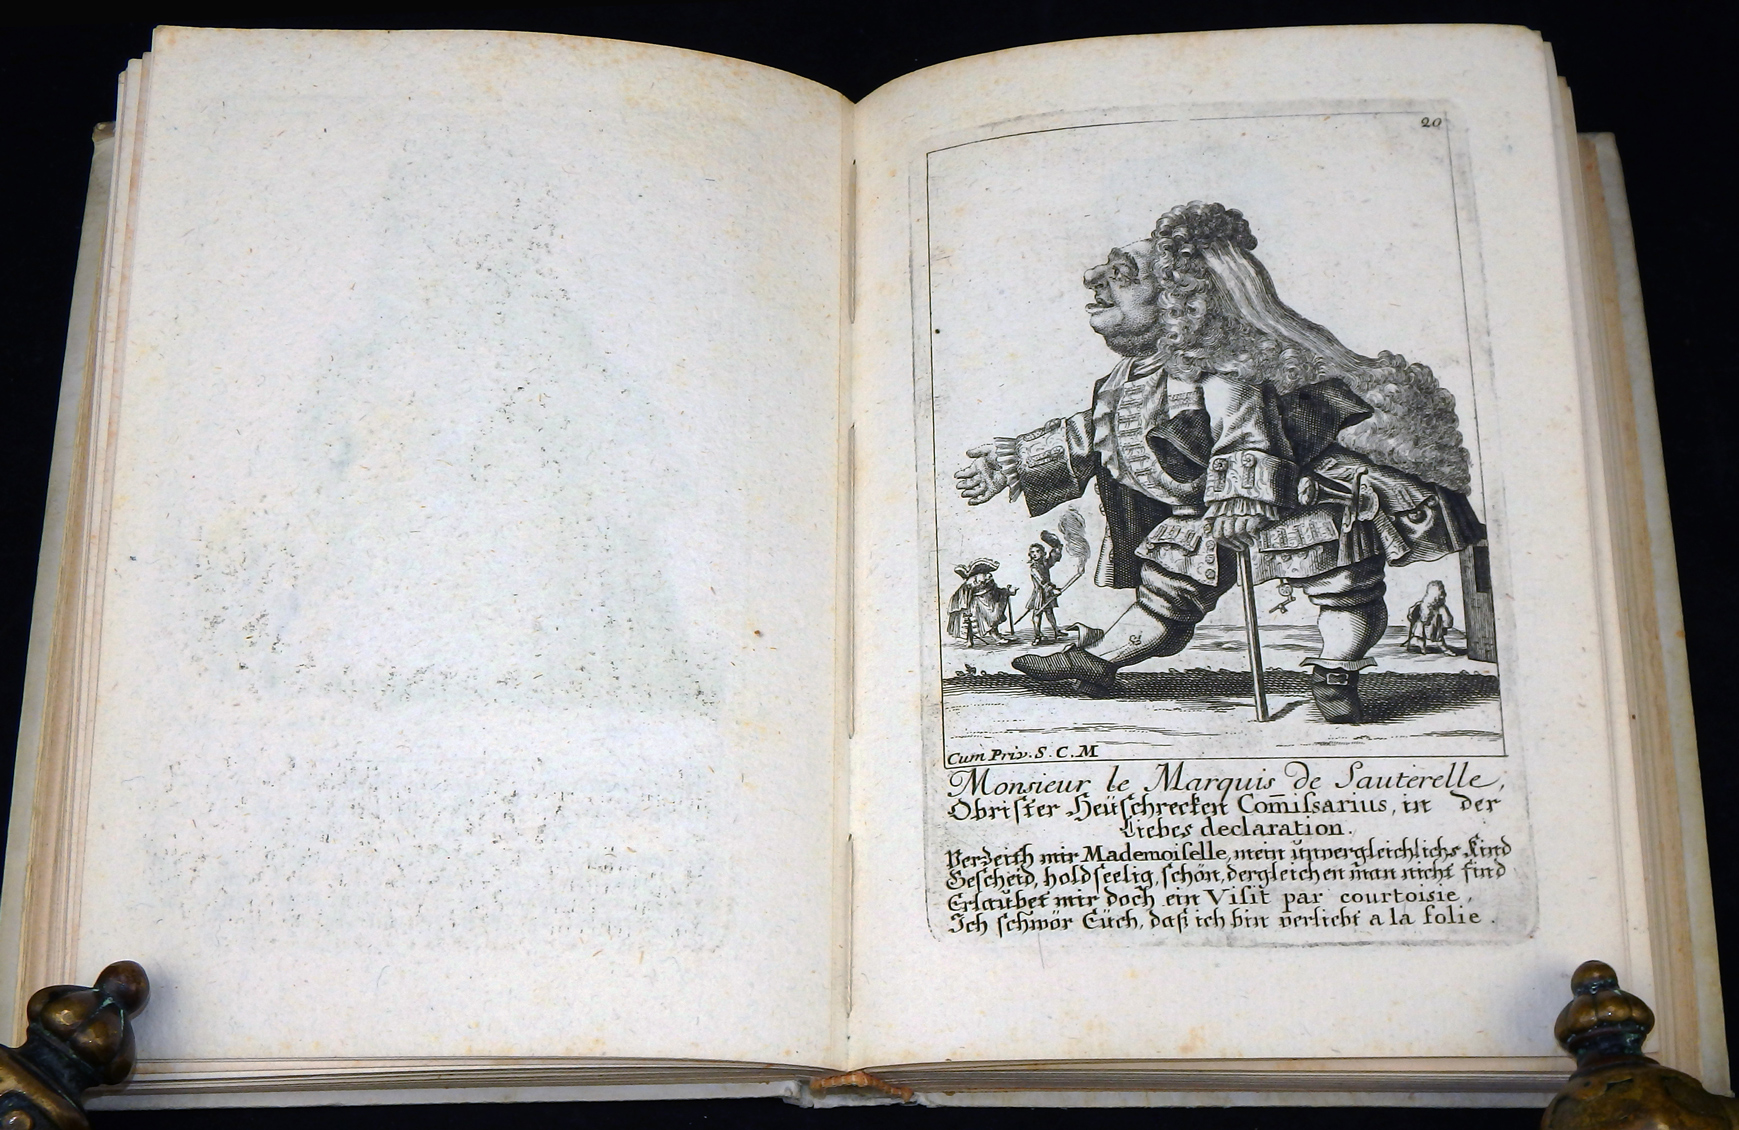 20
Cum Priv. S. C. M
Monsieur le Marquis de Sauterelle,
Obrister Heüschrecken Com̄iſsarius, in der
Liebes declaration.
Verzeith mir Mademoiſelle, mein ūnvergleichlichs Kind
Gescheid, holdseelig, schön, dergleichen man nicht find
Erlaūbet mir doch ein Viſit par courtoisie,
Ich schwör Eüch, daß ich bin verliebt a la folie.